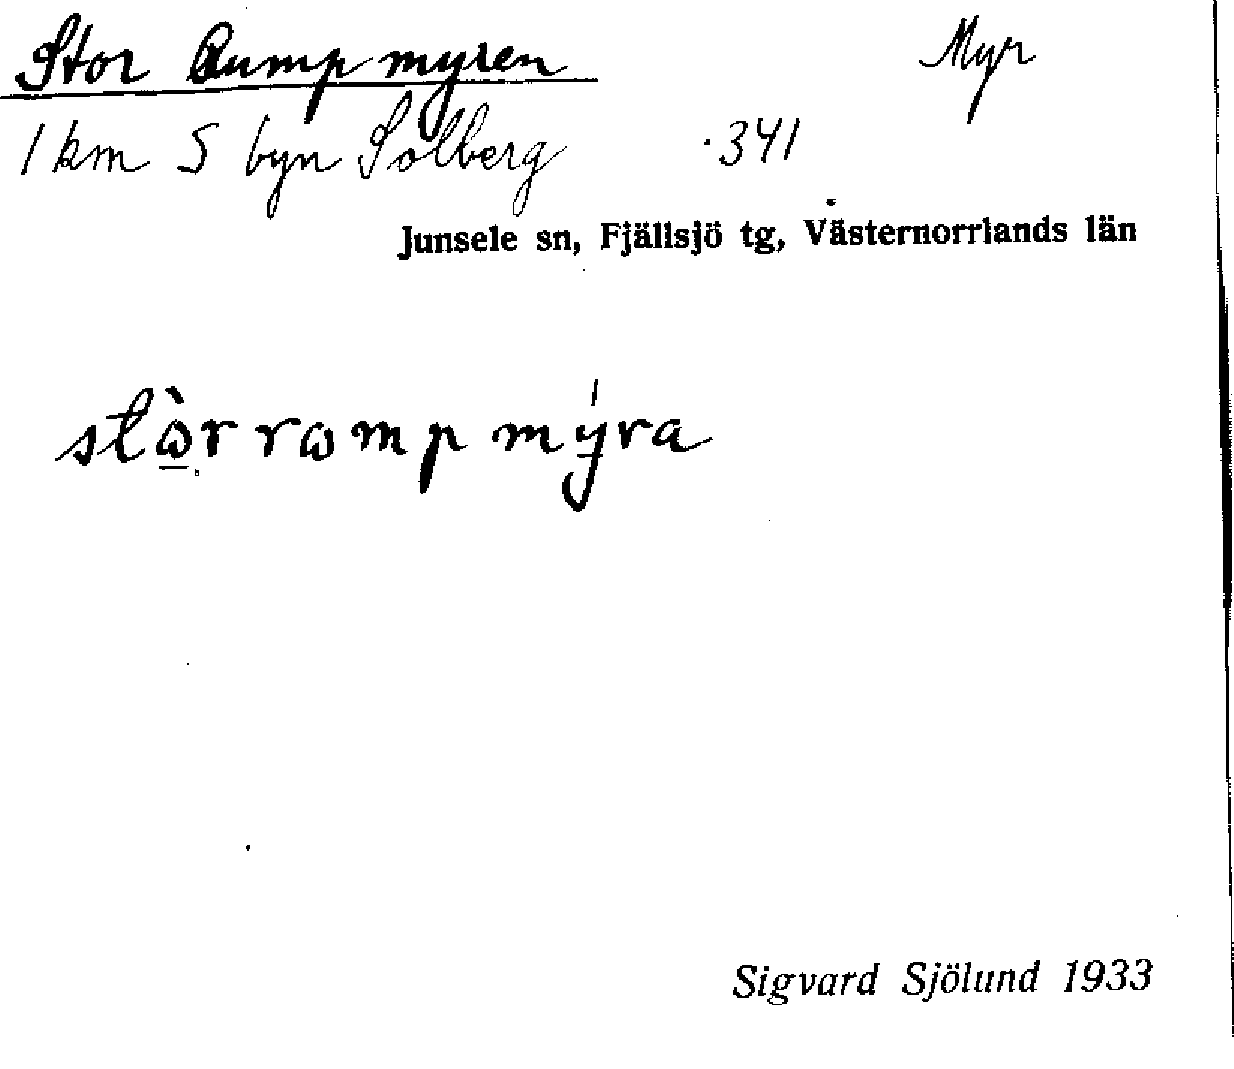 Stor Rumpmyren Myr
1 km S byn Solberg .341
Junsele sn, Fjällsjö tg, Västernorrlands län
stɷ̀r rɷmpmýra
Sigvard Sjölund 1933